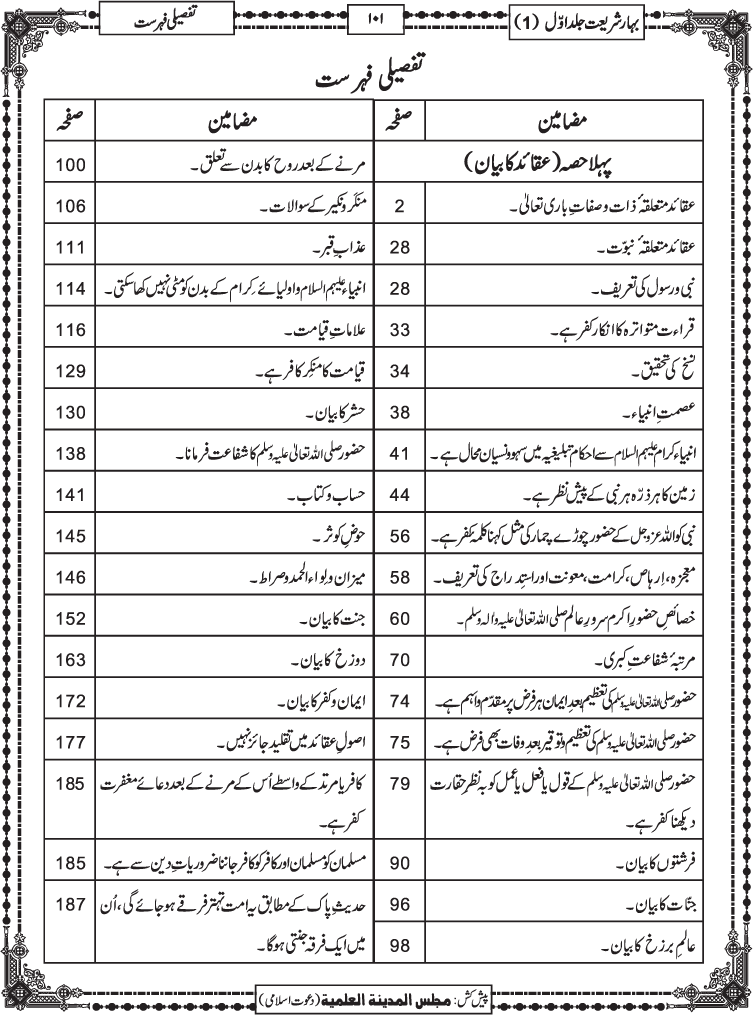 بہار شریعت جلد اوّل (1)
۱۰۱
تفصیلی فہرست
تفصیلی فہرست
مضامین صفحہ
پہلا حصہ (عقائد کا بیان)
عقائد متعلقۂ ذات و صفاتِ باری تعالیٰ۔ 2
عقائد متعلقۂ نبوّت۔ 28
نبی و رسول کی تعریف۔ 28
قراءت متواترہ کا انکار کفر ہے۔ 33
نسخ کی تحقیق۔ 34
عصمتِ انبیاء۔ 38
انبیاء کرام علیہم السلام سے احکام تبلیغیہ میں سہو و نسیان محال ہے۔ 41
زمین کا ہر ذرّہ ہر نبی کے پیش نظر ہے۔ 44
نبی کو اللہ عزوجل کے حضور چوڑے چمار کی مثل کہنا کلمۂ کفر ہے۔ 56
معجزہ، اِرہاص، کرامت، معونت اور استِدراج کی تعریف۔ 58
خصائصِ حضورِ اکرم سرورِ عالم صلی اللہ تعالیٰ علیہ والہ وسلم۔ 60
مرتبۂ شفاعتِ کبریٰ۔ 70
حضور صلی اللہ تعالیٰ علیہ وسلم کی تعظیم بعدِ ایمان ہر فرض پر مقدّم و اہم ہے۔ 74
حضور صلی اللہ تعالیٰ علیہ وسلم کی تعظیم و توقیر بعدِ وفات بھی فرض ہے۔ 75
حضور صلی اللہ تعالیٰ علیہ وسلم کے قول یا فعل یا عمل کو بہ نظرِ حقارت 79
دیکھنا کفر ہے۔
فرشتوں کا بیان۔ 90
جنّات کا بیان۔ 96
عالمِ برزخ کا بیان۔ 98
مضامین صفحہ
مرنے کے بعد روح کا بدن سے تعلق۔ 100
منکر و نکیر کے سوالات۔ 106
عذابِ قبر۔ 111
انبیاء علیہم السلام و اولیائے کِرام کے بدن کو مٹی نہیں کھا سکتی۔ 114
علاماتِ قیامت۔ 116
قیامت کا منکِر کافر ہے۔ 129
حشر کا بیان۔ 130
حضور صلی اللہ تعالیٰ علیہ وسلم کا شفاعت فرمانا۔ 138
حساب و کتاب۔ 141
حوضِ کوثر۔ 145
میزان و لِواء الحمد و صراط۔ 146
جنت کا بیان۔ 152
دوزخ کا بیان۔ 163
ایمان و کفر کا بیان۔ 172
اصولِ عقائد میں تقلید جائز نہیں۔ 177
کافر یا مرتد کے واسطے اُس کے مرنے کے بعد دعائے مغفرت 185
کفر ہے۔
مسلمان کو مسلمان اور کافر کو کافر جاننا ضروریاتِ دین سے ہے۔ 185
حدیثِ پاک کے مطابق یہ امت تہتر فرقے ہو جائے گی، اُن 187
میں ایک فرقہ جنتی ہوگا۔
پیش کش: مجلس المدینة العلمیة (دعوت اسلامی)